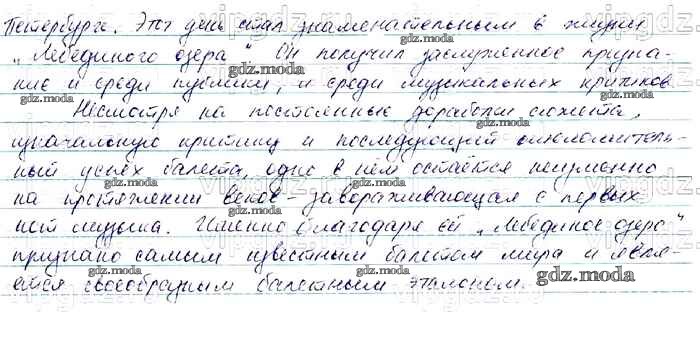 Петербурге. Этот день стал знаменательным в жизни
„Лебединого озера“. Он получил заслуженное призна-
ние и среди публики, и среди музыкальных критиков.
Несмотря на постоянные доработки сюжета,
изначальную критику и последующий ошеломитель-
ный успех балета, одно в нём остаётся неизменно
на протяжении веков – завораживающая с первых
нот музыка. Именно благодаря ей „Лебединое озеро“
признано самым известным балетом мира и явля-
ется своеобразным балетным эталоном.
gdz.moda
vipgdz.com